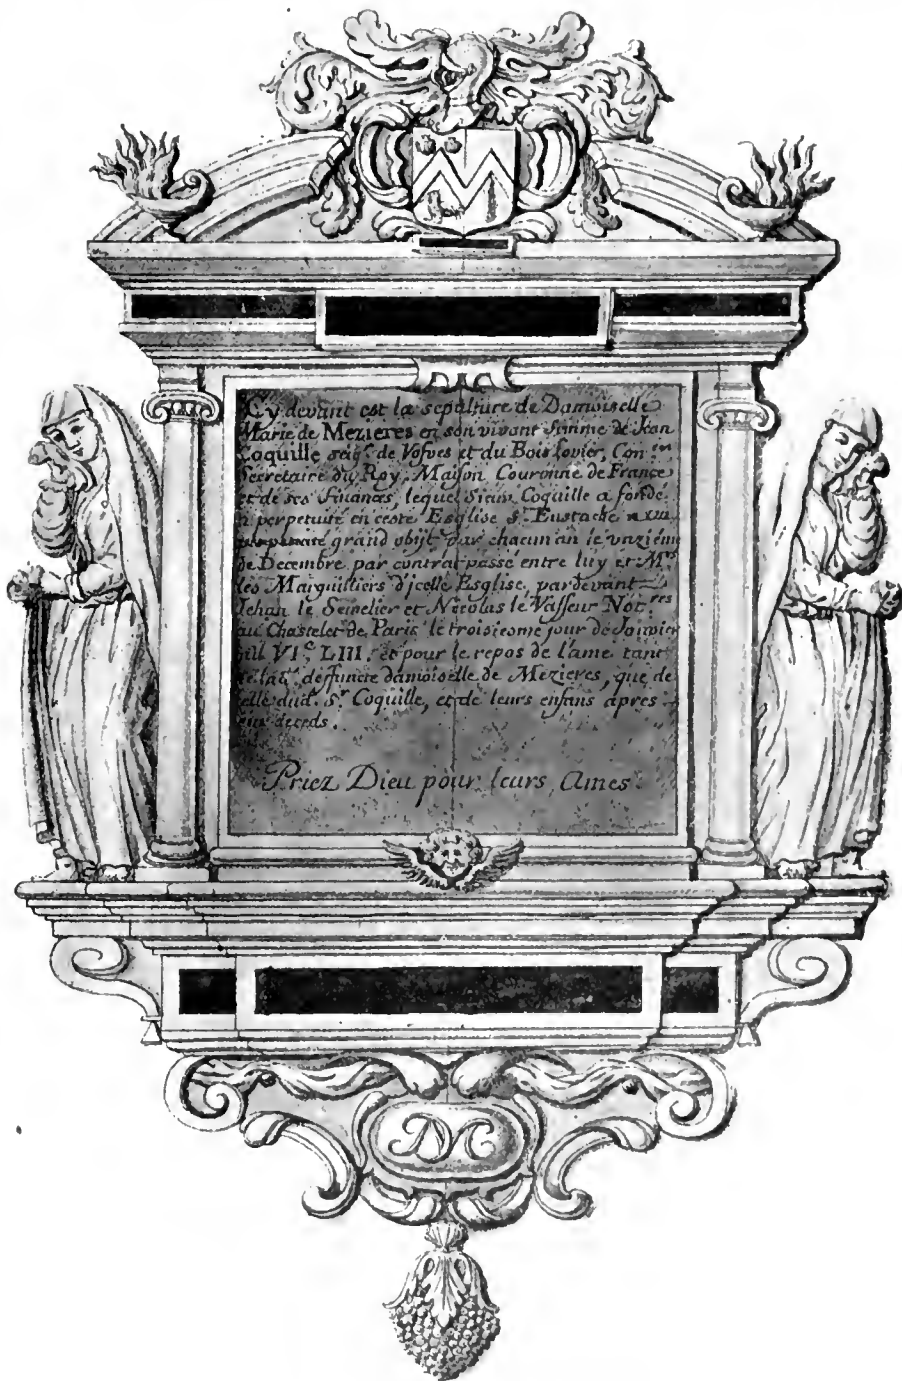 Cy devant est la sepulture de Damoiselle
Marie de Mezieres en son vivant femme de Jean
Coquille seigr. de Vosves et du Bois Lovier, Con.
Secretaire du Roy, Maison Couronne de France
et de ses Finances, lequel sieur Coquille a fondé
a perpetuité en ceste Esglise St. Eustache
grand obijt par chacun an le unziéme
de Decembre par contrat passé entre luy et Mrs
les Marguilliers d'icelle Esglise, pardevant
Jehan le Semelier et Nicolas le Vasseur Notres
au Chastelet de Paris le troisiesme jour de
VIc LIII. et pour le repos de l'ame tant
de lad. deffuncte damoiselle de Mezieres, que de
celle dud. Sr. Coquille, et de leurs enfans apres
leur deceds.
Priez Dieu pour leurs Ames.